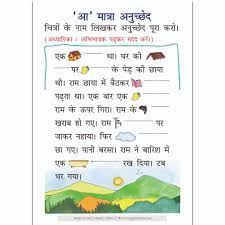 ‘आ’ मात्रा अनुच्छेद
चित्रों के नाम लिखकर अनुच्छेद पूरा करो।
(अध्यापिका / अभिभावक पढ़कर मदद करें।)
एक था। घर की
पर के पेड़ की छाया
थी। राम छाया में बैठकर
पढ़ता था। एक बार एक
राम के घर के राम के
खराब हो गए। राम पर
जाकर नहाया। फिर
छा गए। पानी बरसा। राम ने बारिश में
एक रख दिया। टब
भर गया।